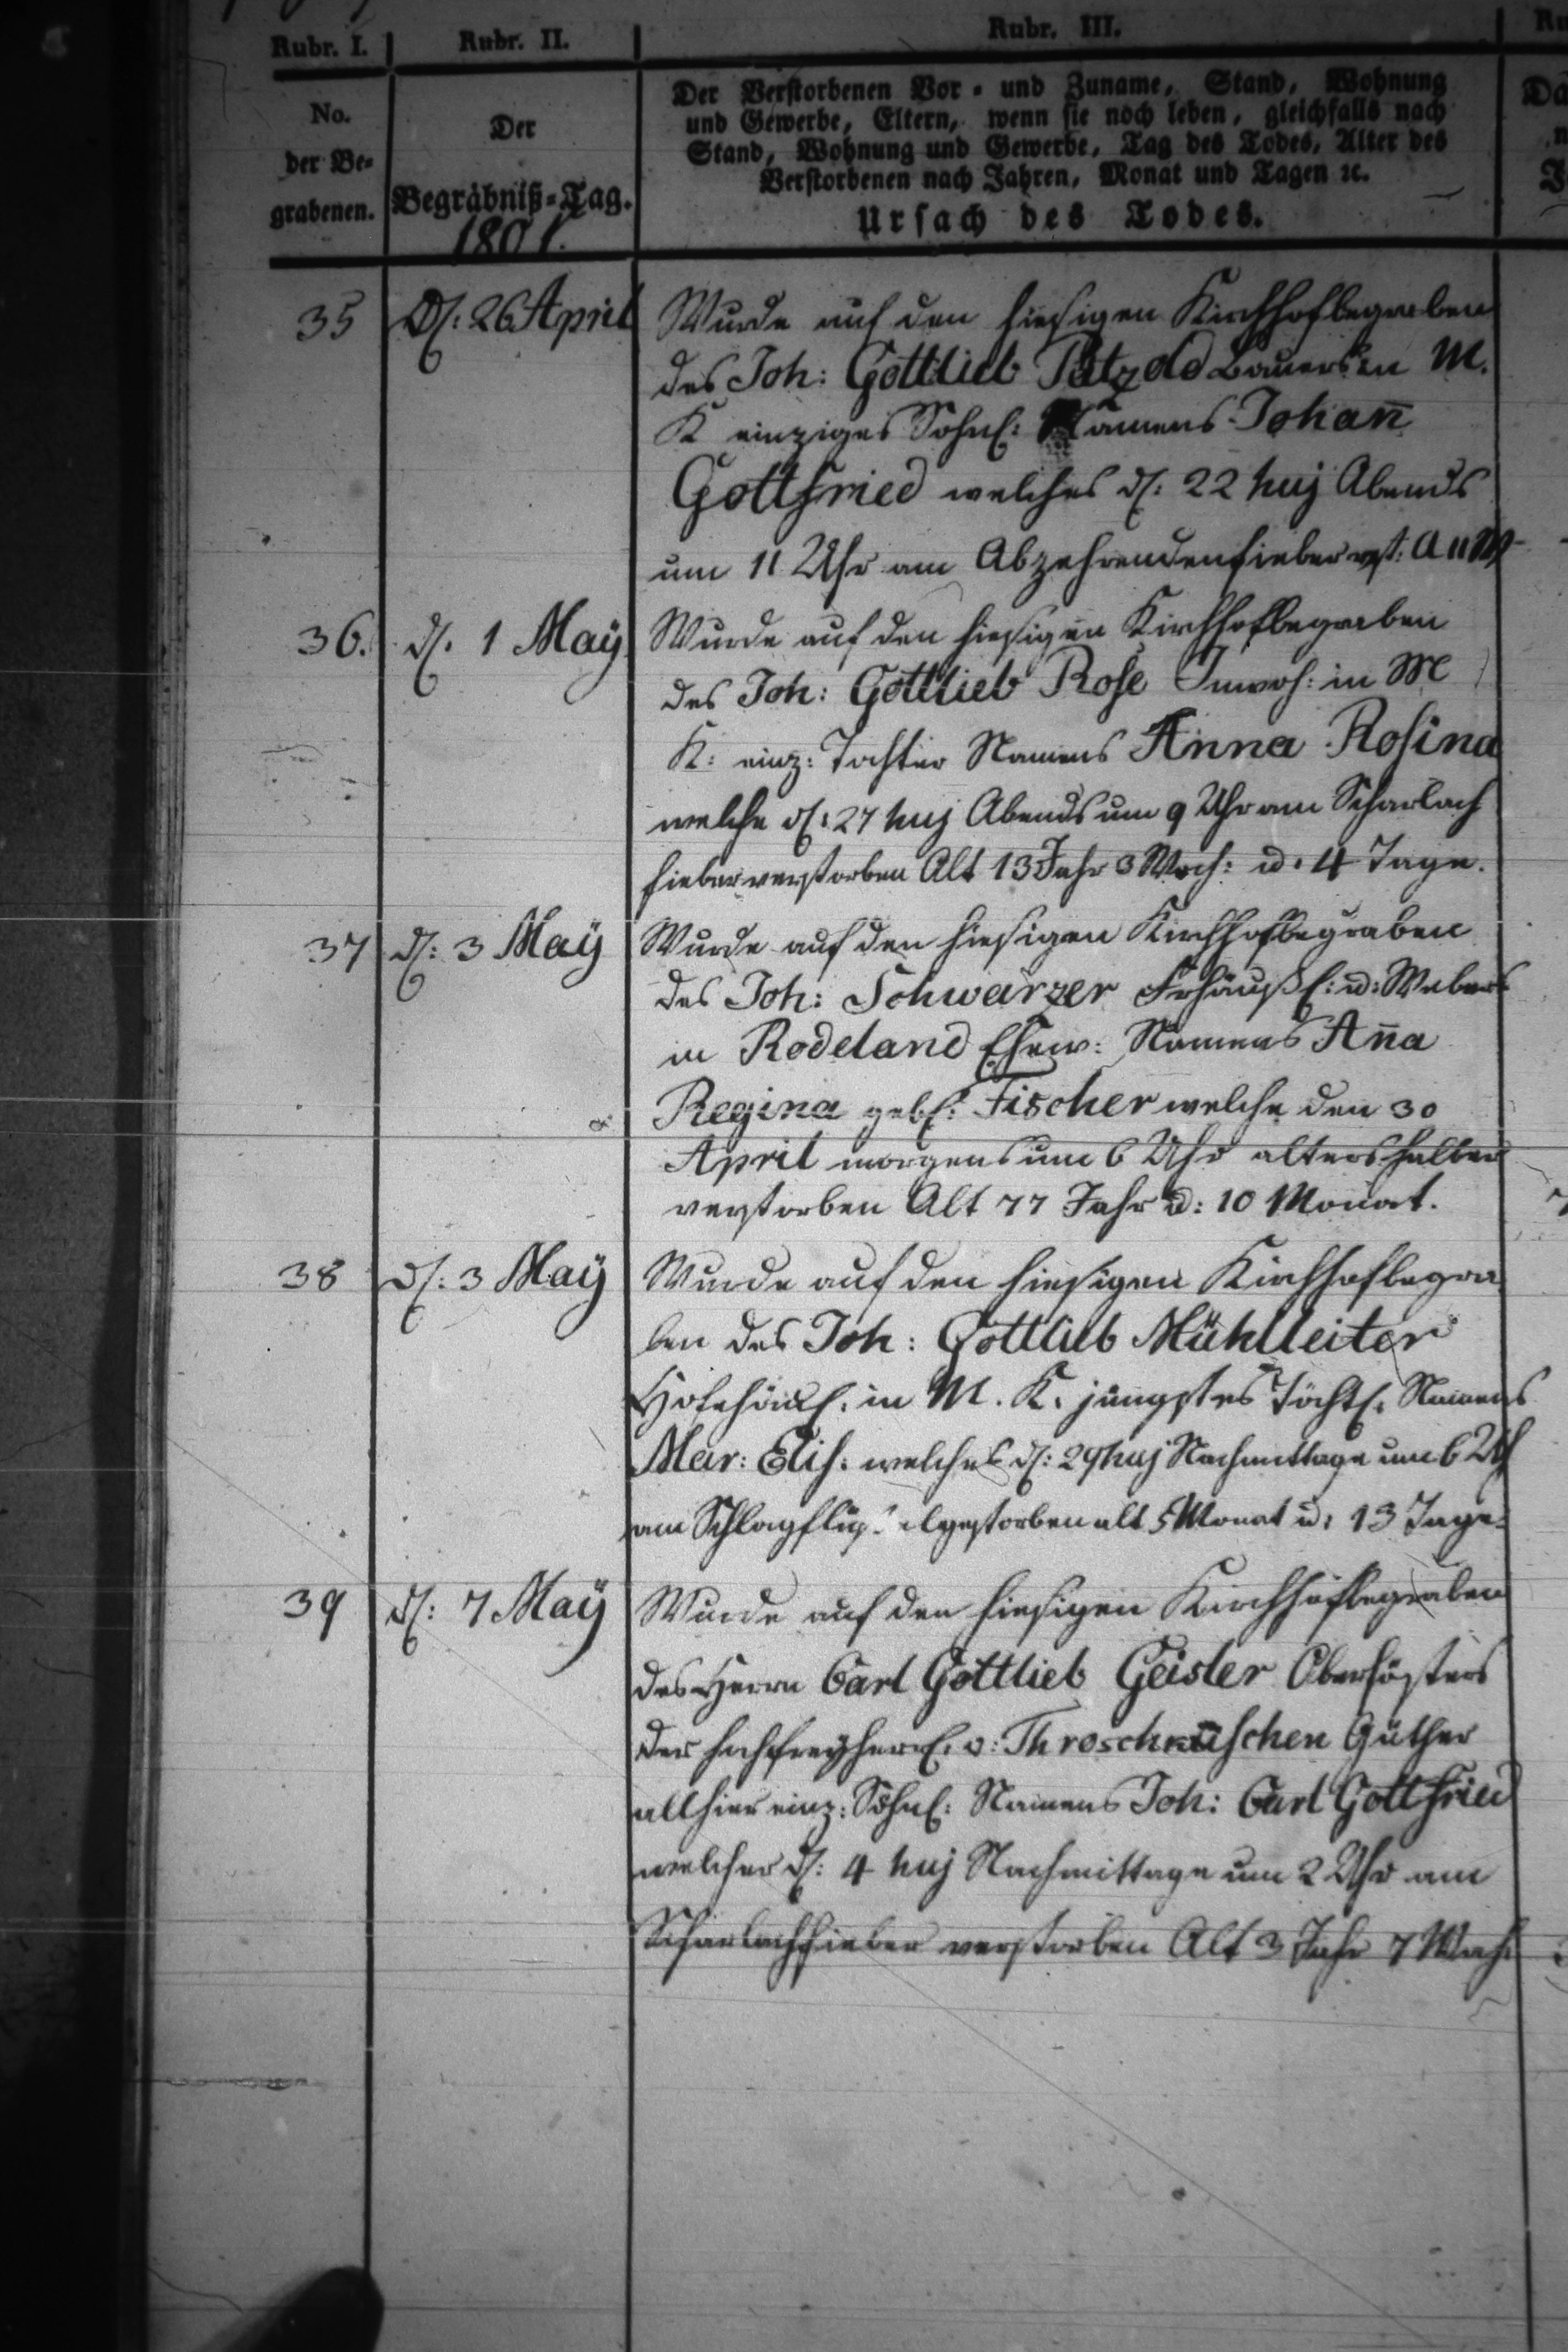 Rubr. I.
Rubr. II.
Rubr. III.
No.
der Be-
grabenen.
Der
Begräbniß-Tag.
1801.
Der Verstorbenen Vor- und Zuname, Stand, Wohnung
und Gewerbe, Eltern, wenn sie noch leben, gleichfalls nach
Stand, Wohnung und Gewerbe, Tag des Todes, Alter des
Verstorbenen nach Jahren, Monat und Tagen ꝛc.
Ursach des Todes.
35
D: 26 April
Wurde auf den hiesigen Kirchhof begraben
des Joh: Gottlieb Patzold Bauers in M.
K einziges Söhnl: Namens Johan̄
Gottfried welches d: 22 huj Abends
um 11 Uhr am Abzehrenden fieber vst: A 11 M
36.
d. 1 Maÿ
Wurde auf den hiesigen Kirchhof begraben
des Joh: Gottlieb Rose Inwoh: in M
K: einz: Tochter Namens Anna Rosina
welche d: 27 huj Abends um 9 Uhr am Scharlach
fieber verstorben Alt 13 Jahr 3 Woch: u. 4 Tage.
37
d: 3 Maÿ
Wurde auf den hiesigen Kirchhof begraben
des Joh: Schwarzer Frhäußl: u: Webers
in Rodeland Ehew: Namens An̄a
Regina geb: Fischer welche den 30
April morgens um 6 Uhr altershalber
verstorben Alt 77 Jahr u: 10 Monat.
38
d: 3 Maÿ
Wurde auf den hiesigen Kirchhof begra
ben des Joh: Gottlieb Mühlleiter
Hofehäusl. in M. K. jüngstes Töchtl. Namens
Mar: Elis: welches d: 29 huj Nachmittage um 6 Uh
am Schlagfluß gestorben alt 5 Monat u: 13 Tage.
39
d: 7 Maÿ
Wurde auf den hiesigen Kirchhof begraben
des Herrn Carl Gottlieb Geisler Oberförsters
der v: Throschkischen Güther
allhier einz: Söhnl: Namens Joh: Carl Gottfried
welcher d: 4 huj Nachmittage um 2 Uhr am
Scharlachfieber verstorben Alt 3 Jahr 7 Woch: